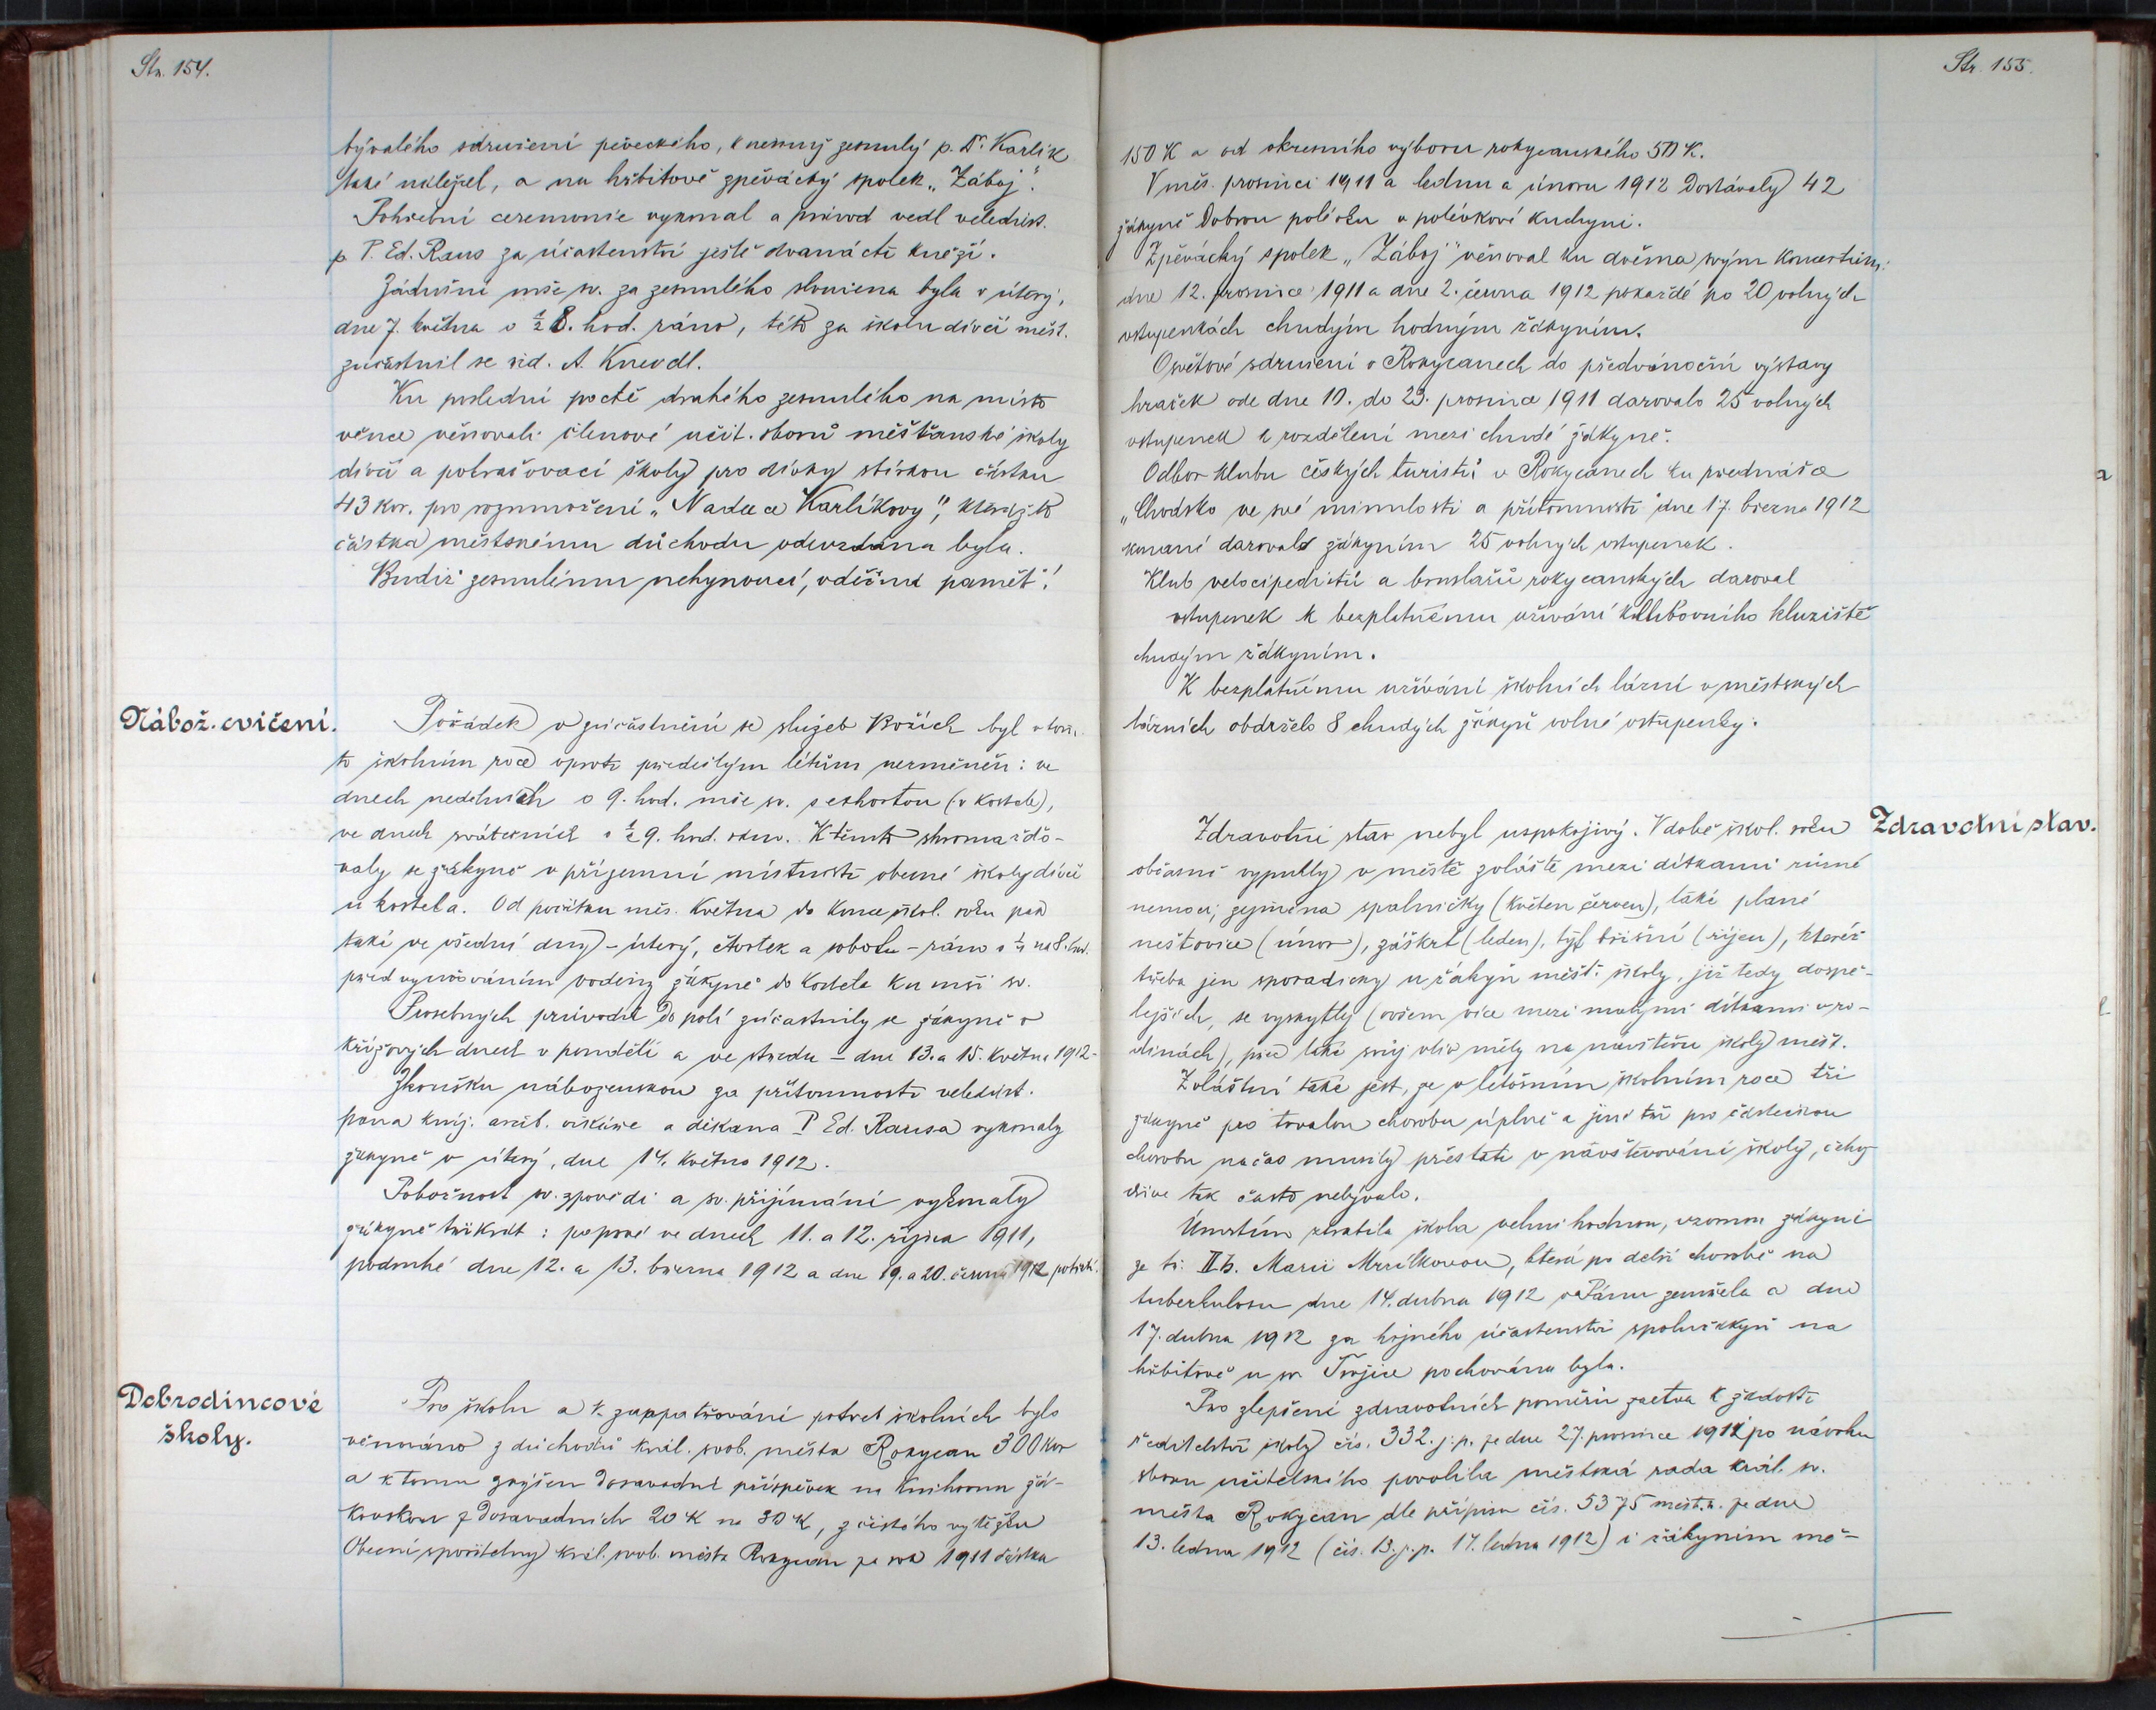 Str. 154.
bývalého sdružení pěveckého, k nemuž zesnulý p. Dr. Karlík
také náležel, a na hřbitově zpěvácký spolek „Záboj“.
Pohřební ceremonie vykonal a průvod vedl veledůst.
p. P. Ed. Raus za účastenství ještě dvanácti kněží.
Zádušní mše sv. za zesnulého sloužena byla v úterý,
dne 7. května o ½ 8. hod. ráno, též za školu dívčí měšť.
zúčastnil se řid. A. Knedl.
Ku poslední poctě drahého zesnulého na místo
věnce věnovali členové učit. sborů měšťanské školy
dívčí a pokračovací školy pro dívky sbírkou částku
43 kor. pro rozmnožení „Nadace Karlíkovy“, kterážto
částka městskému důchodu odevzdána byla.
Budiž zesnulému nehynoucí, vděčná paměť!
Nábož. cvičení.
Pořádek v zúčastnění se služeb Božích byl v tom-
to školním roce oproti předešlým létům nezměněn: ve
dnech nedělních o 9. hod. mše sv. s exhortou (v kostele),
ve dnech svátečních o ½ 9. hod. ráno. K těmto shromažďo-
valy se žákyně v přízemní místnosti obecné školy dívčí
u kostela. Od počátku měs. května do konce škol. roku pak
také ve všední dny - úterý, čtvrtek a sobotu - ráno o ¼ na 8. hod.
před vyučováním vodeny žákyně do kostela ku mši sv.
Prosebných průvodů do polí zúčastnily se žákyně v
křížových dnech v pondělí a ve středu - dne 13. a 15. května 1912 -
Zkoušku náboženskou za přítomnosti veledůst.
pana kníž. arcib. vikáře a děkana P. Ed. Rausa vykonaly
žákyně v úterý, dne 14. května 1912.
Pobožnost sv. zpovědi a sv. přijímání vykonaly
žákyně třikrát: poprvé ve dnech 11. a 12. října 1911,
podruhé dne 12. a 13. března 1912 a dne 19. a 20. června 1912 potřetí.
Dobrodincové
školy.
Pro školu a k zaopatřování potřeb školních bylo
věnováno z důchodů král. svob. města Rokycan 300 kor
a k tomu zvýšen dosavadní příspěvek na knihovnu žá-
kovskou z dosavadních 20 K na 30 K, z čistého výtěžku
Obecní spořitelny král. svob. města Rokycan za rok 1911 částka
Str. 155.
150 K a od okresního výboru rokycanského 50 K.
V měs. prosinci 1911 a lednu a únoru 1912 dostávaly 42
žákyně dobrou polévku v polévkové kuchyni.
Zpěvácký spolek „Záboj“ věnoval ku dvěma svým koncertům:
dne 12. prosince 1911 a dne 2. června 1912 pokaždé po 20 volných
vstupenkách chudým hodným žákyním.
Osvětové sdružení v Rokycanech do předvánoční výstavy
hraček ode dne 10. do 23. prosince 1911 darovalo 25 volných
vstupenek k rozdělení mezi chudé žákyně.
Odbor klubu českých turistů v Rokycanech ku přednášce
„Chodsko ve své minulosti a přítomnosti“ dne 17. března 1912
konané daroval žákyním 25 volných vstupenek.
Klub velocipedistů a bruslařů rokycanských daroval
vstupenek k bezplatnému užívání klubovního kluziště
chudým žákyním.
K bezplatnému užívání školních lázní v městských
lázních obdrželo 8 chudých žákyň volné vstupenky.
Zdravotní stav.
Zdravotní stav nebyl uspokojivý. V době škol. roku
občasně vypukly v městě zvláště mezi dítkami různé
nemoci, zejména spalničky (květen červen), také plané
neštovice (únor), záškrt (leden), tyf břišní (říjen), kteréž
třeba jen sporadicky u žákyň měšť. školy, již tedy dospě-
lejších, se vyskytly (ovšem více mezi malými dítkami v ro-
dinách), přec také svůj vliv měly na návštěvu školy měšť.
Zvláštní také jest, že v letošním školním roce tři
žákyně pro trvalou chorobu úplně a jiné tři pro částečnou
chorobu na čas musily přestati v návštěvování školy, čehož
dříve tak často nebývalo.
Úmrtím ztratila škola velmi hodnou, vzornou žákyni
ze tř. II.b. Marii Mrzílkovou, která po delší chorobě na
tuberkulosu dne 14. dubna 1912 v Pánu zemřela a dne
17. dubna 1912 za hojného účastenství spolužákyň na
hřbitově u sv. Trojice pochována byla.
Pro zlepšení zdravotních poměrů žactva k žádosti
ředitelství školy čís. 332. j. p. ze dne 27. prosince 1911 po návrhu
sboru učitelského povolila městská rada král. sv.
města Rokycan dle přípisu čís. 5375 měst. r. ze dne
13. ledna 1912 (čís. 13. j. p. 17. ledna 1912) i žákyním mě-